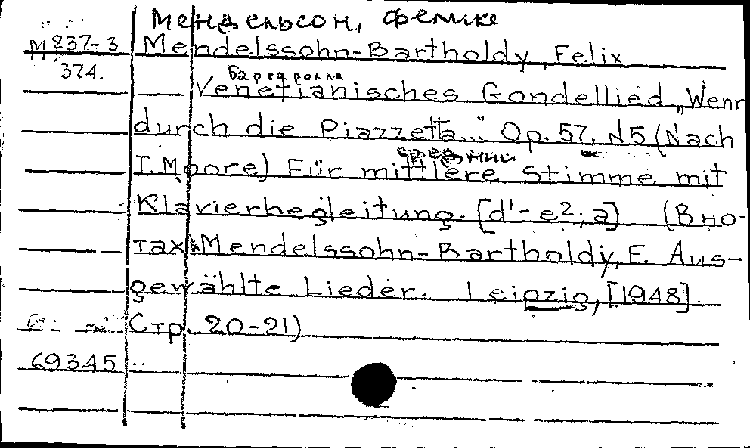 Мендельсон, Феликс
М 837-3 Mendelssohn-Bartholdy, Felix
374.
Баркаролла
Venetianisches Gondellied „Wenn
durch die Piazzetta..." Op. 57, N5 (Nach
T. Moore) Für mittlere Stimme mit
Klavierbegleitung. [d'-e²; a] (В но-
тах: Mendelssohn-Bartholdy, F. Aus-
gewählte Lieder. Leipzig, [1948]
Стр. 20-21)
69345